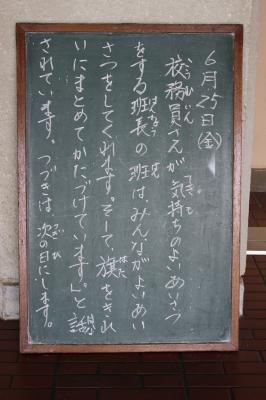 6月25日㈮
校務員さんが気持ちのよいあいさつ
をする班長の班は、みんながよいあい
さつをしてくれます。そして、旗をきれ
いにまとめてかたづけています。」と話
されています。つづきは、次の日にします。